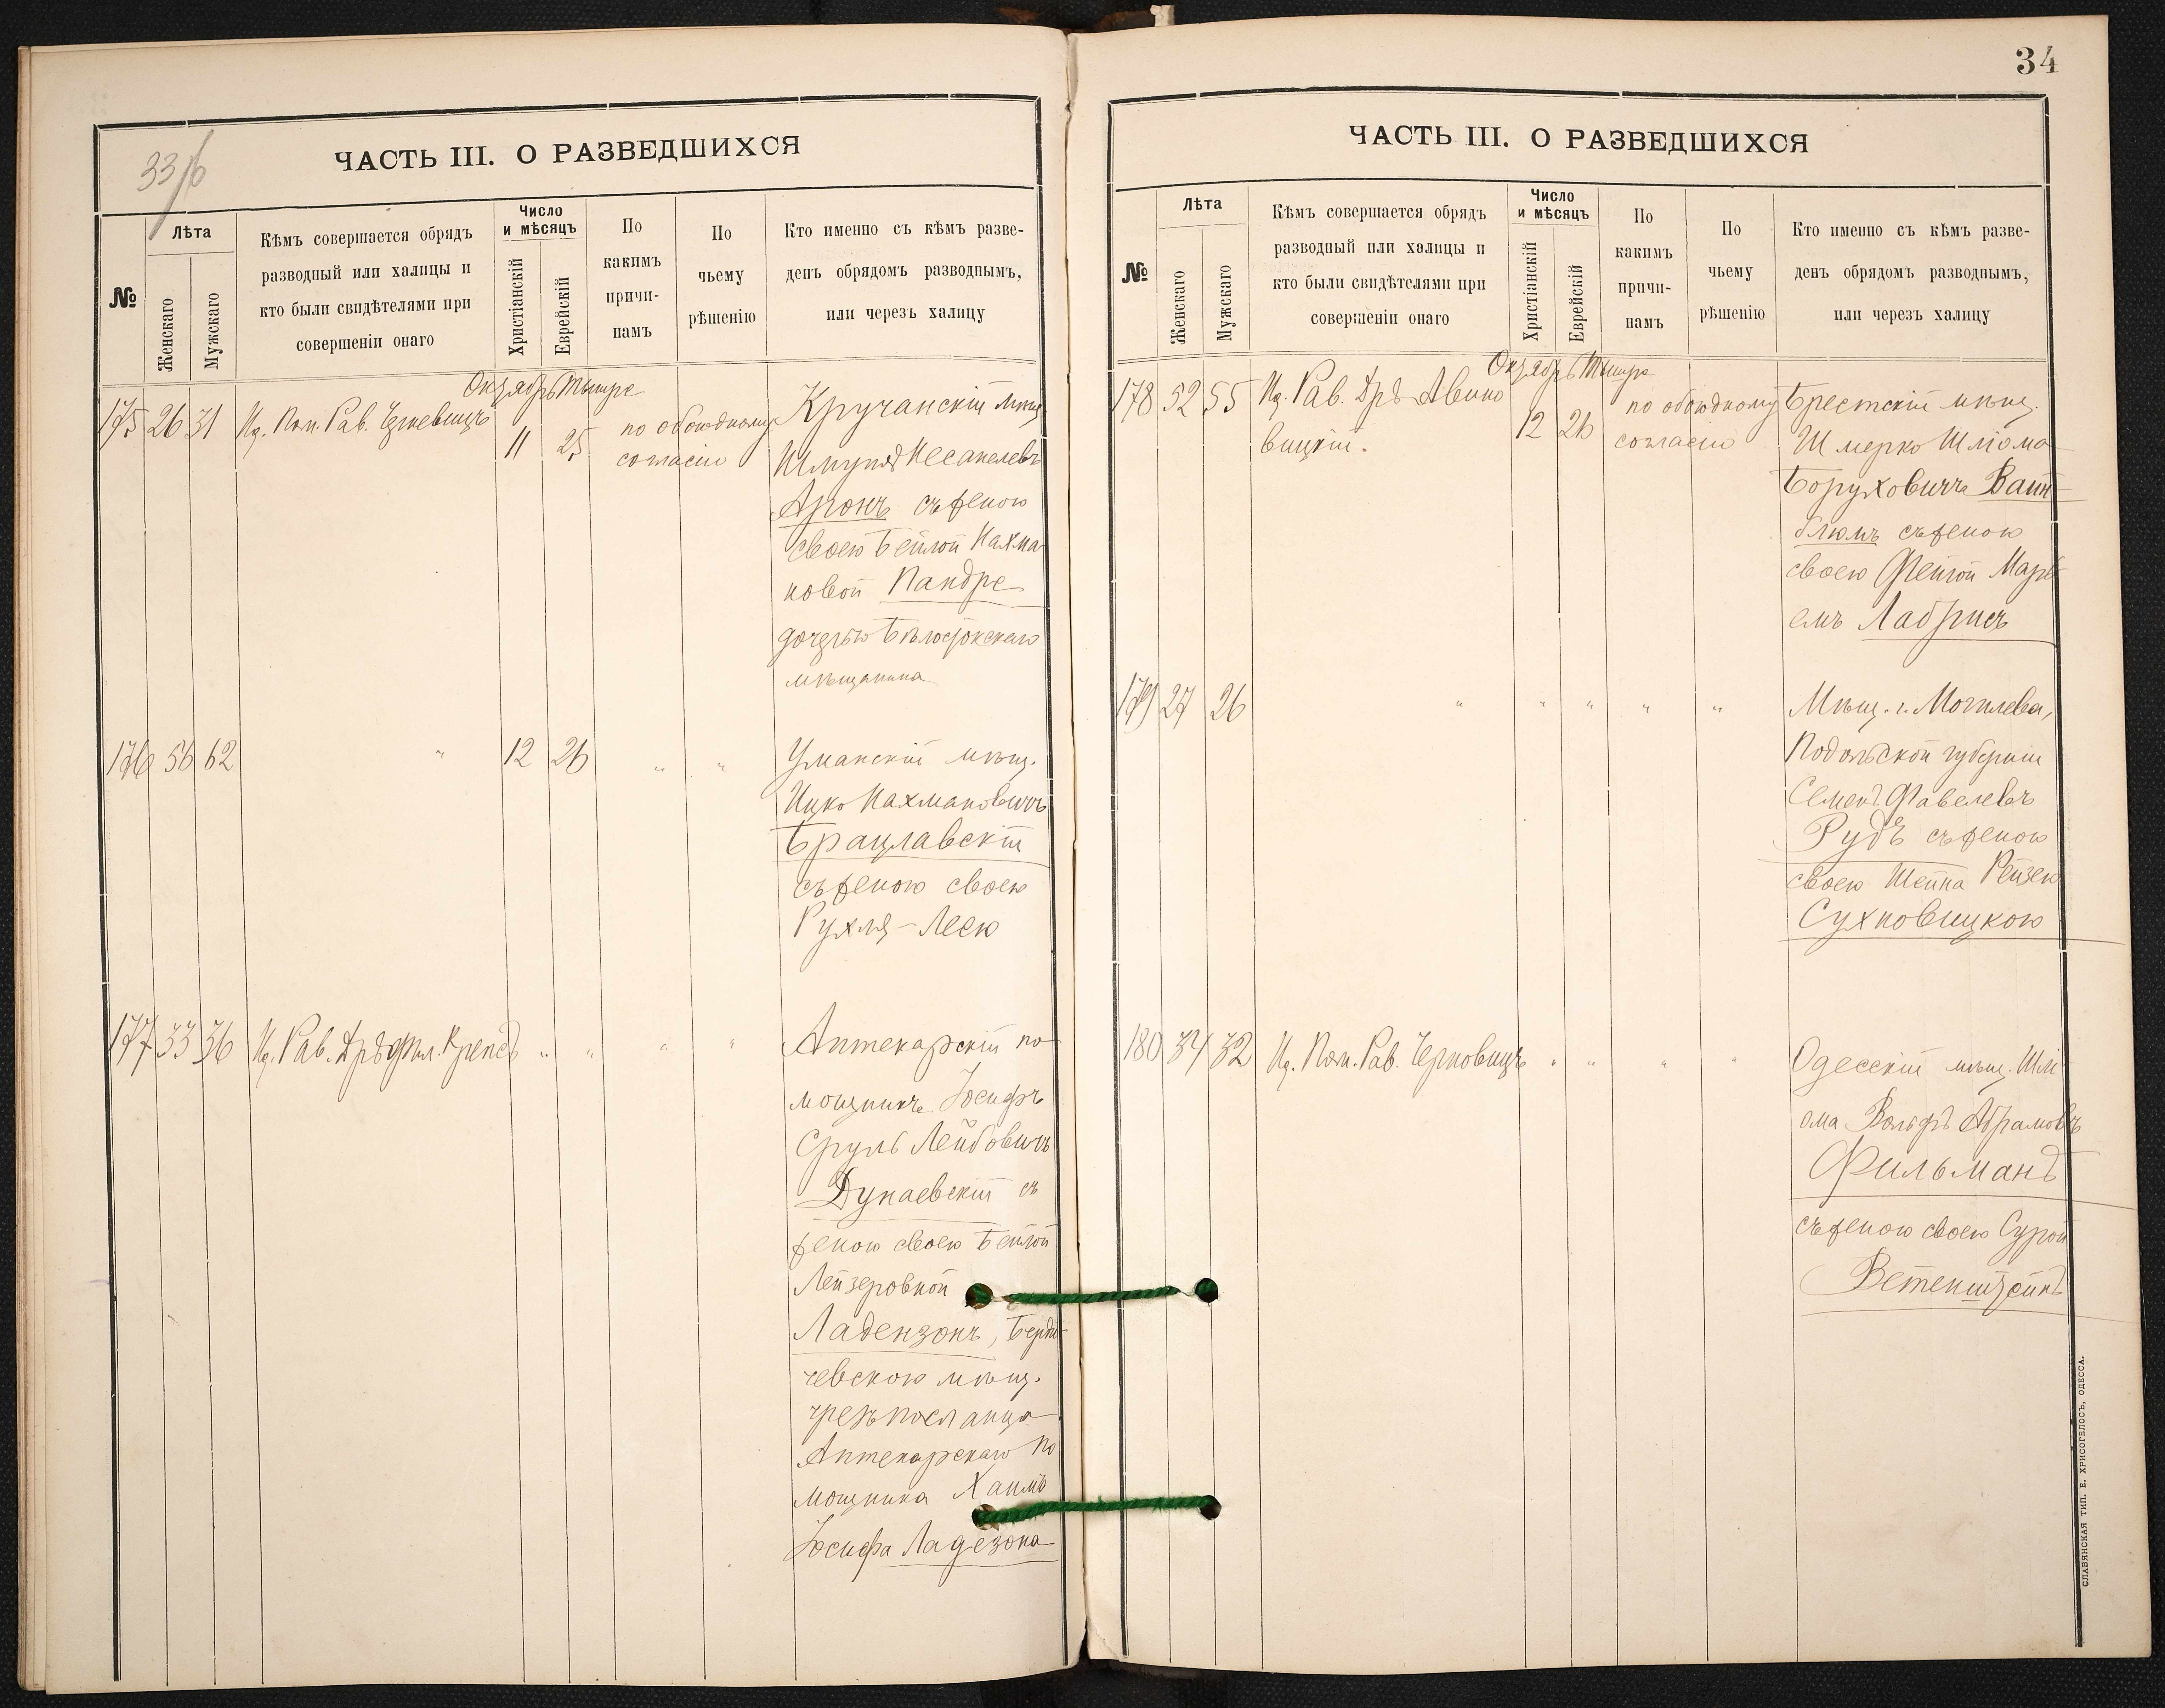 33/б
ЧАСТЬ III. О РАЗВЕДШИХСЯ
№
Лѣта
Женскаго
Мужскаго
Кѣмъ совершается обрядъ
разводный или халицы и
кто были свидѣтелями при
совершеніи онаго
Число
и мѣсяцъ
Христіанскій
Еврейскій
По
какимъ
причи-
намъ
По
чьему
рѣшенію
Кто именно съ кѣмъ разве-
денъ обрядомъ разводнымъ,
или черезъ халицу
Октябрь Тишре
175 26 31 Ид. Пом. Рав. 11 25 по обоюдному
согласію
Кручанскій мѣщ
Аронъ съ женою
своею Бейлой Нахма-
новой Пандре
дочерью Бѣлостокскаго
мѣщанина
176 56 62 " 12 26 " "
Уманскій мѣщ.
Ицко Нахмановичъ
Брацлавскій
съ женою своею
Рухля-Леею
177 33 36 Ид. Рав. Дръ Фил. Крепсъ " " " "
Аптекарскій по-
мощникъ Іосифъ
Сруль Лейбовичъ
Дунаевскій съ
женою своею Бейлой
Лейзеровной
Ладензонъ, Берди-
чевскою мѣщ.
чрезъ посланца
Аптекарскаго по
мощника Хаимъ
Іосифа Ладезона
34
ЧАСТЬ III. О РАЗВЕДШИХСЯ
№
Лѣта
Женскаго
Мужскаго
Кѣмъ совершается обрядъ
разводный или халицы и
кто были свидѣтелями при
совершеніи онаго
Число
и мѣсяцъ
Христіанскій
Еврейскій
По
какимъ
причи-
намъ
По
чьему
рѣшенію
Кто именно съ кѣмъ разве-
денъ обрядомъ разводнымъ,
или черезъ халицу
Октябрь Тишре
178 52 55 Ид. Рав. Дръ Авино
вицкій. 12 26 по обоюдному
согласію
Брестскій мѣщ.
Шмерко Шліома
Боруховичъ Вайн-
блюмъ съ женою
своею Фейгой Марь-
емъ Лабрисъ
179 27 26 " " " " "
Мѣщ. г. Могилева,
Подольской губерніи
Семенъ Фавелевъ
Рудь съ женою
своею Шейна Рейзею
Сухновицкою
180 34 32 Ид. Пом. Рав. Черновицъ " " " "
Одесскій мѣщ. Шлі
ома Вольфъ Абрамовъ
Фильманъ
съ женою своею Сурой
Ветенштейнъ
СЛАВЯНСКАЯ ТИП. Е. ХРИСОГЕЛОСЪ, ОДЕССА.